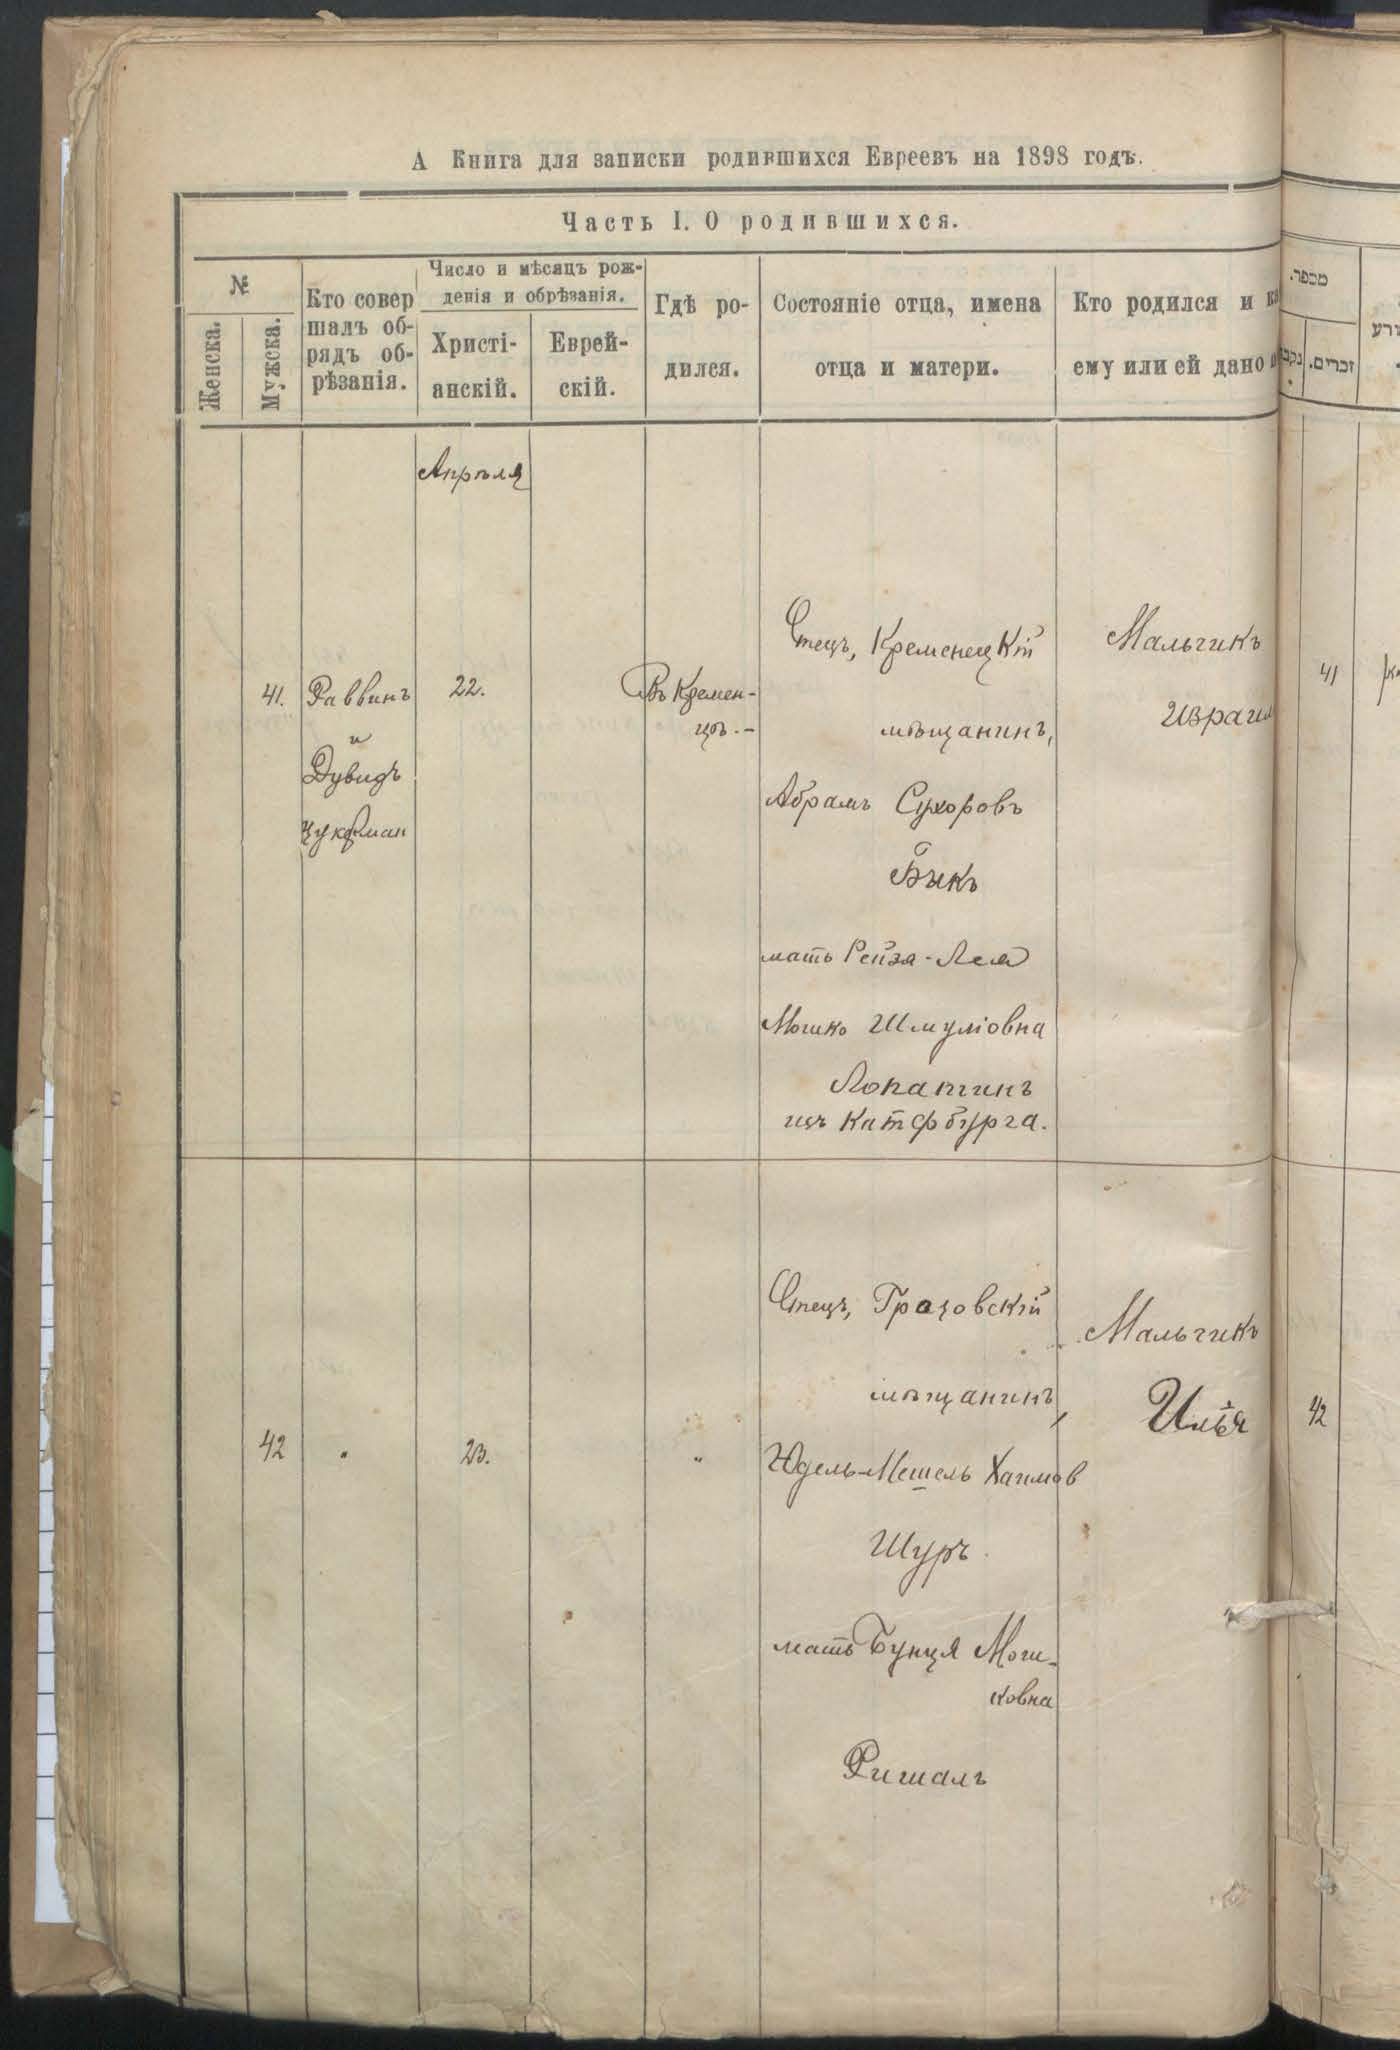 А Книга для записки родившихся Евреевъ на 1898 годъ.
Часть I. О родившихся.
№
Женска.
Мужска.
Кто совер
шалъ об-
рядъ об-
рѣзанія.
Число и мѣсяцъ рож-
денія и обрѣзанія.
Христі-
анскій.
Еврей-
скій.
Гдѣ ро-
дился.
Состояніе отца, имена
отца и матери.
Кто родился и
ему или ей дано
Апрѣля
41.
Раввинъ
и
Дувидъ
Цукерман
22.
Въ Кремен-
цѣ.-
Отецъ, Кременецкій
мѣщанинъ,
Абрамъ Сухоровъ
Быкъ
мать Рейзя-Лея
Мошко Шмуліовна
Лопатинъ
изъ Катербурга.
Мальчикъ
42
"
23.
"
Отецъ,
мѣщанинъ,
Юдель-Мешель Хаимов
Шуръ
мать Бунця Мош-
ковна
Ришалъ
Мальчикъ
Илья
מספר.
זכרים.
41
42